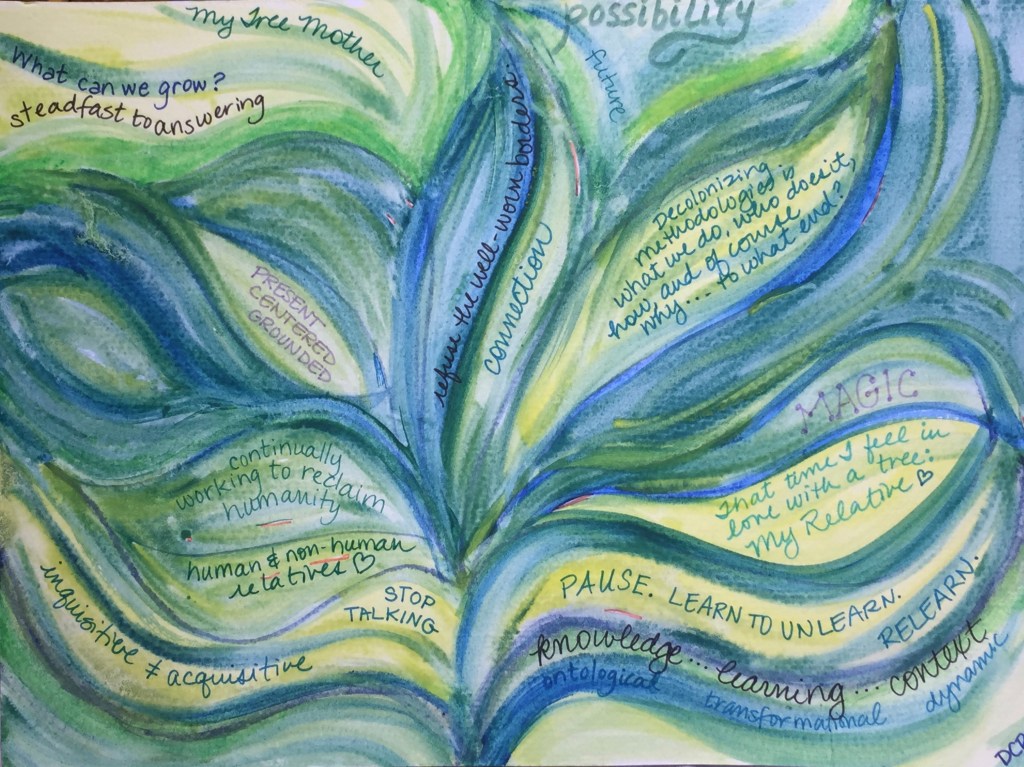 My Tree Mother
possibility
What can we grow?
steadfast to answering
future
refuse the well-worn borders.
connection
Decolonizing
methodologies is
what we do, who does it,
how, and of course
why... To what end?
PRESENT
CENTERED
GROUNDED
MAGIC
That time I feel in
love with a tree:
My Relative ♡
continually
working to reclaim
humanity
human & non-human
relatives ♡
STOP
TALKING
inquisitive ≠ acquisitive
PAUSE. LEARN TO UNLEARN.
RELEARN.
knowledge... learning... context
ontological
transformational
dynamic
DCR